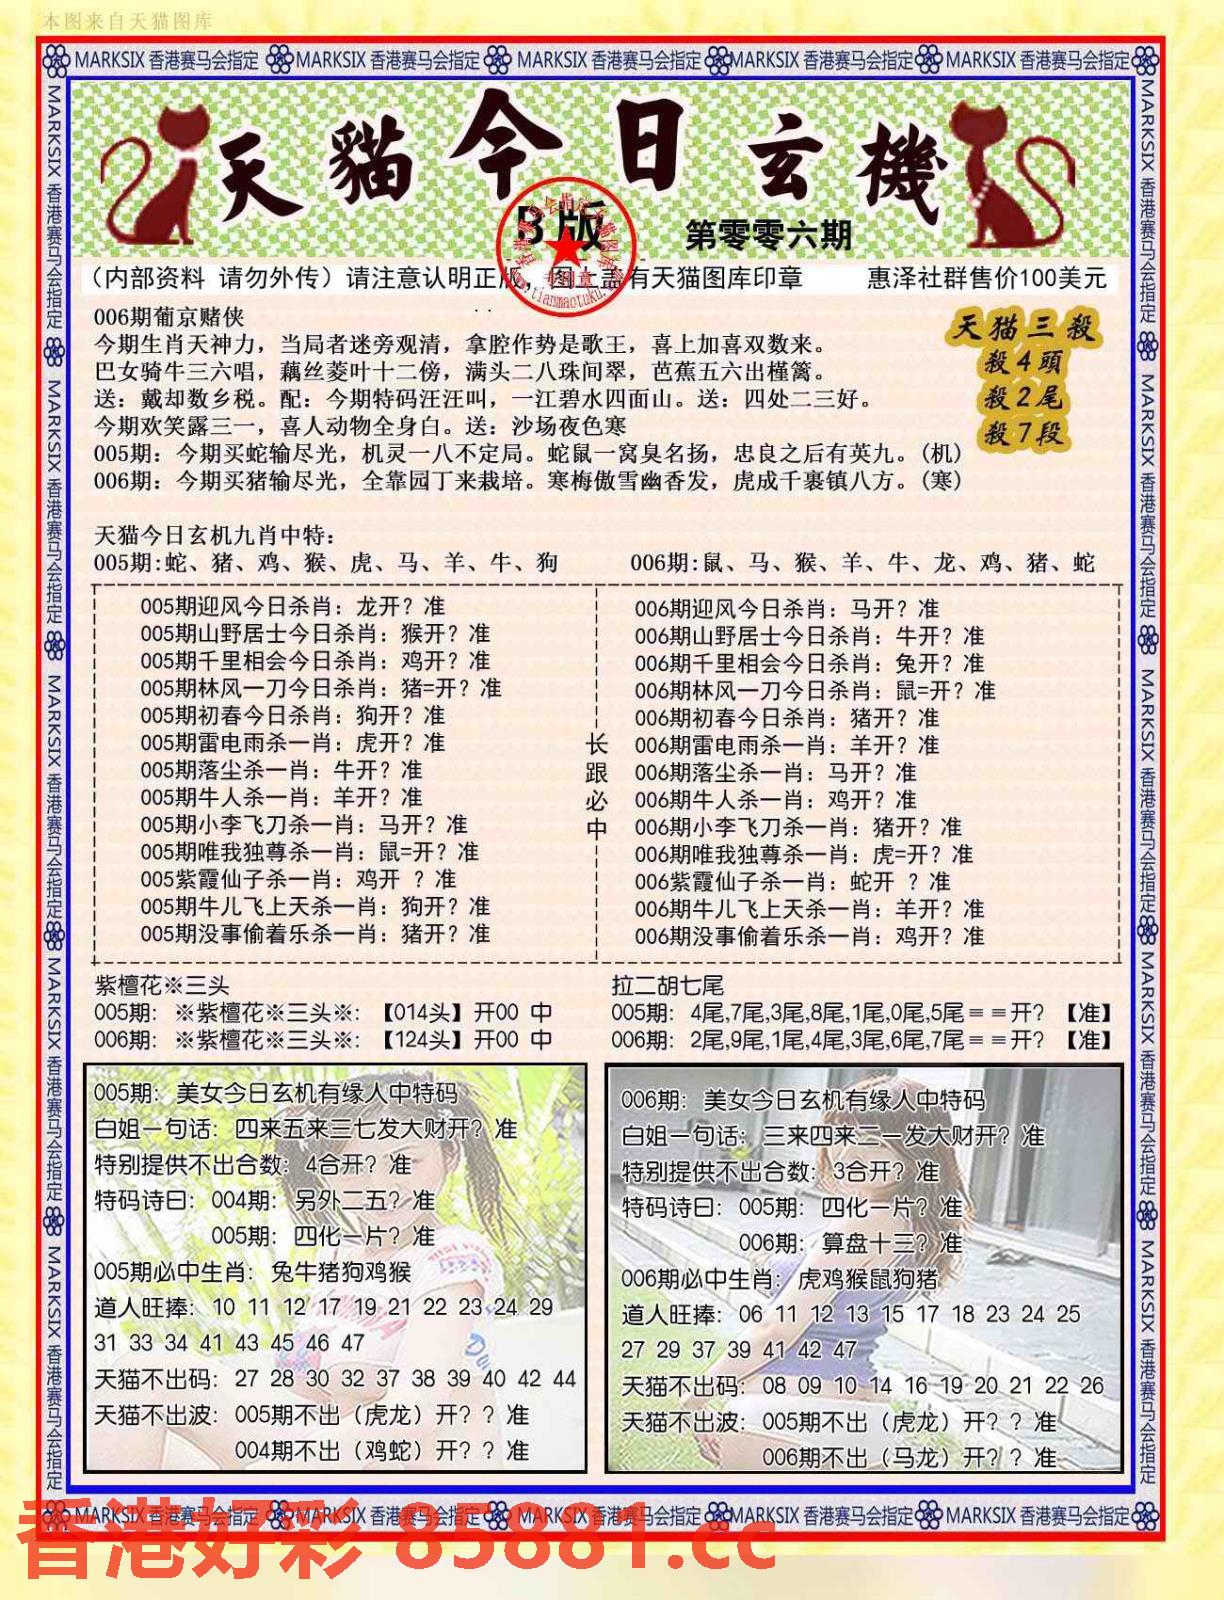 本图来自天猫图库
MARKSIX 香港赛马会指定 MARKSIX 香港赛马会指定 MARKSIX 香港赛马会指定 MARKSIX 香港赛马会指定 MARKSIX 香港赛马会指定
MARKSIX 香港赛马会指定 MARKSIX 香港赛马会指定 MARKSIX 香港赛马会指定 MARKSIX 香港赛马会指定 MARKSIX 香港赛马会指定
天貓今日玄機
B版
第零零六期
(内部资料 请勿外传) 请注意认明正版, 图上盖有天猫图库印章 惠泽社群售价100美元
006期葡京赌侠
今期生肖天神力, 当局者迷旁观清, 拿腔作势是歌王, 喜上加喜双数来。
巴女骑牛三六唱, 藕丝菱叶十二傍, 满头二八珠间翠, 芭蕉五六出槿篱。
送: 戴却数乡税。配: 今期特码汪汪叫, 一江碧水四面山。送: 四处二三好。
今期欢笑露三一, 喜人动物全身白。送: 沙场夜色寒
005期: 今期买蛇输尽光, 机灵一八不定局。蛇鼠一窝臭名扬, 忠良之后有英九。(机)
006期: 今期买猪输尽光, 全靠园丁来栽培。寒梅傲雪幽香发, 虎成千裹镇八方。(寒)
天猫三殺
殺4頭
殺2尾
殺7段
天猫今日玄机九肖中特:
005期:蛇、猪、鸡、猴、虎、马、羊、牛、狗 006期:鼠、马、猴、羊、牛、龙、鸡、猪、蛇
005期迎风今日杀肖: 龙开? 准
005期山野居士今日杀肖: 猴开? 准
005期千里相会今日杀肖: 鸡开? 准
005期林风一刀今日杀肖: 猪=开? 准
005期初春今日杀肖: 狗开? 准
005期雷电雨杀一肖: 虎开? 准
005期落尘杀一肖: 牛开? 准
005期牛人杀一肖: 羊开? 准
005期小李飞刀杀一肖: 马开? 准
005期唯我独尊杀一肖: 鼠=开? 准
005紫霞仙子杀一肖: 鸡开 ? 准
005期牛儿飞上天杀一肖: 狗开? 准
005期没事偷着乐杀一肖: 猪开? 准
长
跟
必
中
006期迎风今日杀肖: 马开? 准
006期山野居士今日杀肖: 牛开? 准
006期千里相会今日杀肖: 兔开? 准
006期林风一刀今日杀肖: 鼠=开? 准
006期初春今日杀肖: 猪开? 准
006期雷电雨杀一肖: 羊开? 准
006期落尘杀一肖: 马开? 准
006期牛人杀一肖: 鸡开? 准
006期小李飞刀杀一肖: 猪开? 准
006期唯我独尊杀一肖: 虎=开? 准
006紫霞仙子杀一肖: 蛇开 ? 准
006期牛儿飞上天杀一肖: 羊开? 准
006期没事偷着乐杀一肖: 鸡开? 准
紫檀花※三头
005期: ※紫檀花※三头※: 【014头】开00 中
006期: ※紫檀花※三头※: 【124头】开00 中
拉二胡七尾
005期: 4尾,7尾,3尾,8尾,1尾,0尾,5尾==开? 【准】
006期: 2尾,9尾,1尾,4尾,3尾,6尾,7尾==开? 【准】
005期: 美女今日玄机有缘人中特码
白姐一句话: 四来五来三七发大财开? 准
特别提供不出合数: 4合开? 准
特码诗曰: 004期: 另外二五? 准
005期: 四化一片? 准
005期必中生肖: 兔牛猪狗鸡猴
道人旺捧: 10 11 12 17 19 21 22 23 24 29
31 33 34 41 43 45 46 47
天猫不出码: 27 28 30 32 37 38 39 40 42 44
天猫不出波: 005期不出 (虎龙) 开? ? 准
004期不出 (鸡蛇) 开? ? 准
006期: 美女今日玄机有缘人中特码
白姐一句话: 三来四来二一发大财开? 准
特别提供不出合数: 3合开? 准
特码诗曰: 005期: 四化一片? 准
006期: 算盘十三? 准
006期必中生肖: 虎鸡猴鼠狗猪
道人旺捧: 06 11 12 13 15 17 18 23 24 25
27 29 37 39 41 42 47
天猫不出码: 08 09 10 14 16 19 20 21 22 26
天猫不出波: 005期不出 (虎龙) 开? ? 准
006期不出 (马龙) 开? ? 准
MARKSIX 香港赛马会指定 MARKSIX 香港赛马会指定 MARKSIX 香港赛马会指定 MARKSIX 香港赛马会指定 MARKSIX 香港赛马会指定
MARKSIX 香港赛马会指定 MARKSIX 香港赛马会指定 MARKSIX 香港赛马会指定 MARKSIX 香港赛马会指定 MARKSIX 香港赛马会指定
香港好彩 85881.cc